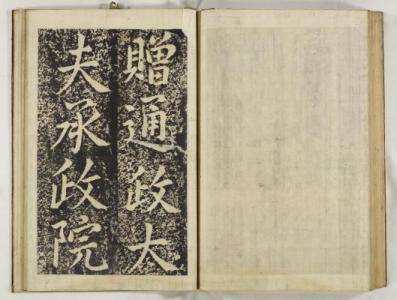 贈通政大
夫承政院